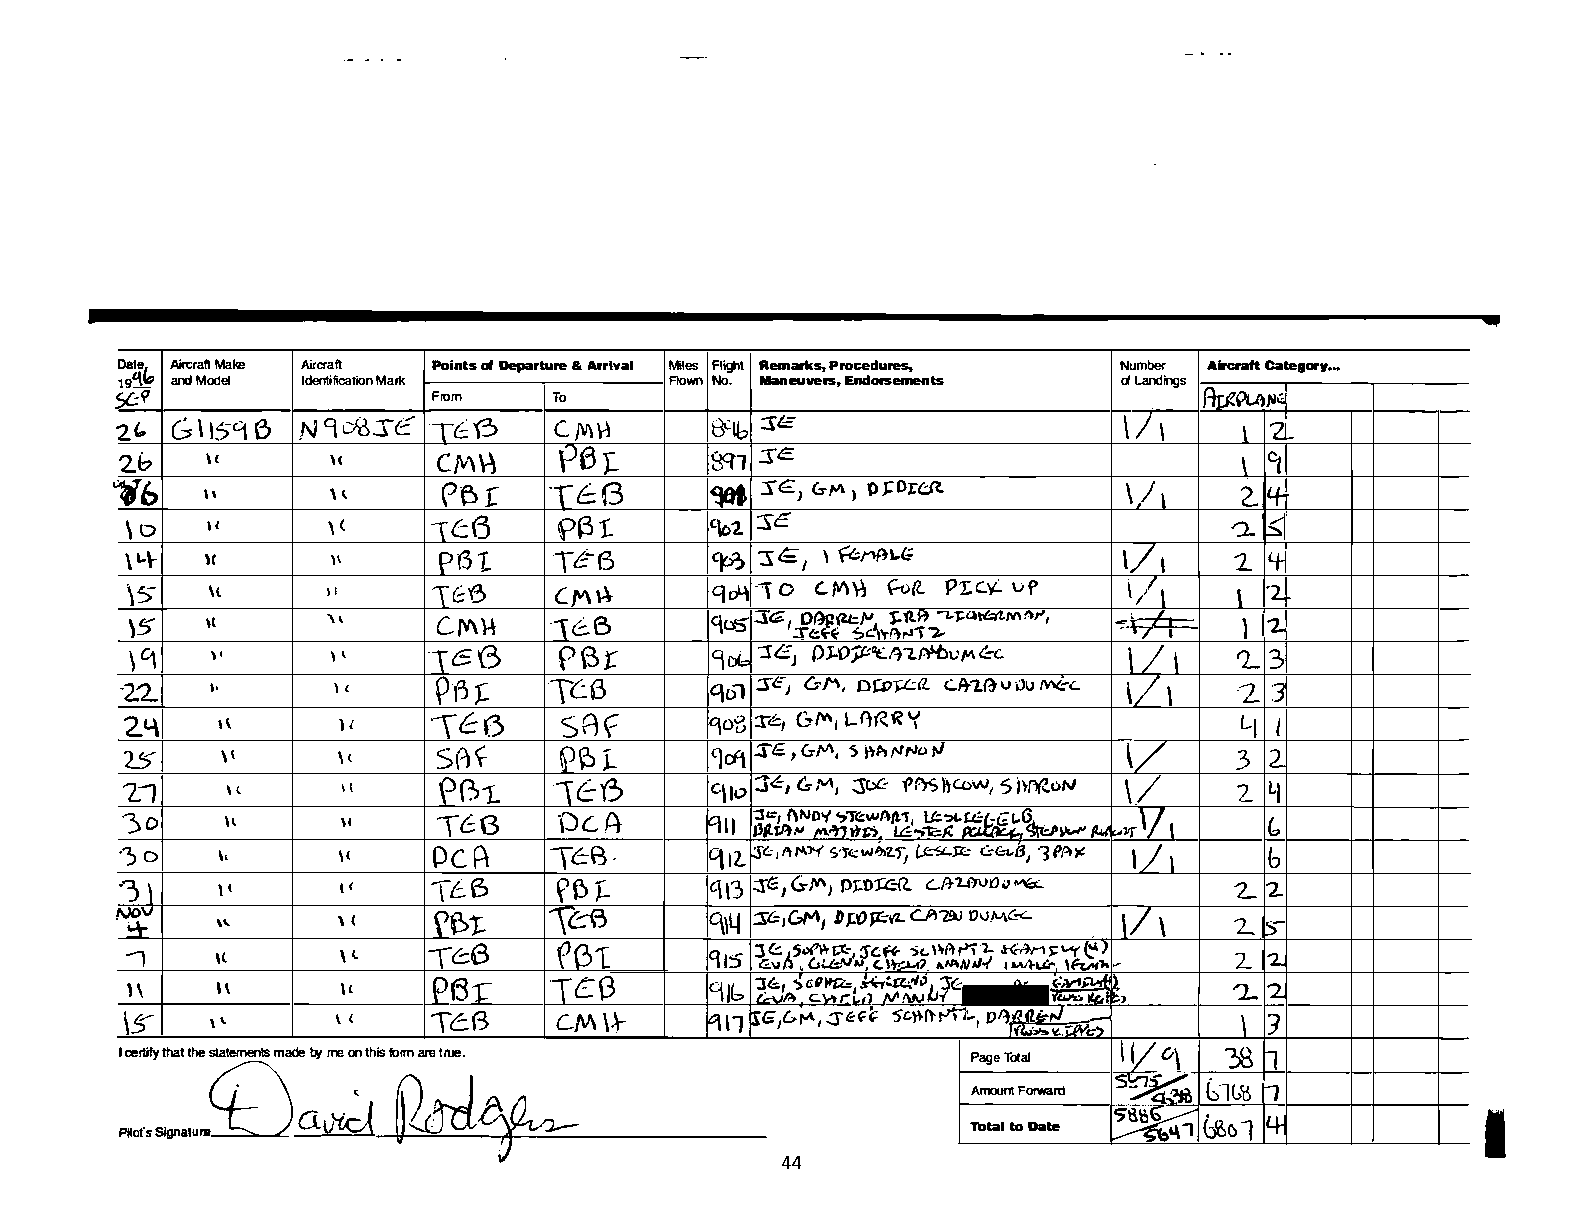 Date, Aircraft Make Aircraft Points of Departure & Arrival Miles Flight Remarks, Procedures, Number Aircraft Category...
1996 and Model Identification Mark Flown No. Maneuvers, Endorsements of Landings
SEP From To AIRPLANE
26 G1159B N908JE TEB CMH 896 JE 1/1 1 2
26 " " CMH PBI 897 JE 1 9
6 " " PBI TEB 901 JE, GM, DIDIER 1/1 2 4
10 " " TEB PBI 902 JE 2 5
14 " " PBI TEB 903 JE, 1 FEMALE 1/1 2 4
15 " " TEB CMH 904 TO CMH FOR PICK UP 1/1 1 2
15 " " CMH TEB 905 JE, DARREN, IRA ZICHERMAN, 1 2
JEFF SCHANTZ
19 " " TEB PBI 906 JE, DIDIER CAZAUDUMEC 1/1 2 3
22 " " PBI TEB 907 JE, GM, DIDIER CAZAUDUMEC 1/1 2 3
24 " " TEB SAF 908 JE, GM, LARRY 4 1
25 " " SAF PBI 909 JE, GM, SHANNON 1/ 3 2
27 " " PBI TEB 910 JE, GM, JOE PASHCOW, SHARON 1/ 2 4
30 " " TEB DCA 911 JE, ANDY STEWART, LESLIE GELB, 1/1 6
BRIAN MATHIS, LESTER POLLACK, STEPHEN
30 " " DCA TEB 912 JE, ANDY STEWART, LESLIE GELB, 3 PAX 1/1 6
31 " " TEB PBI 913 JE, GM, DIDIER CAZAUDUMEC 2 2
NOV
4 " " PBI TEB 914 JE, GM, DIDIER CAZAUDUMEC 1/1 2 5
7 " " TEB PBI 915 JE, SOPHIE, JEFF SCHANTZ & FAMILY (4) 2 2
EVA, GLENN, CHILD, NANNY, 1 MALE,
11 " " PBI TEB 916 JE, SOPHIE, 2 2
EVA, CHILD, NANNY
15 " " TEB CMH 917 JE, GM, JEFF SCHANTZ, DARREN 1 3
I certify that the statements made by me on this form are true. Page Total 11/9 38 7
Amount Forward 5875/ 6768 7
Pilot's Signature David Rodgers Total to Date 5886/5647 6807 4
44